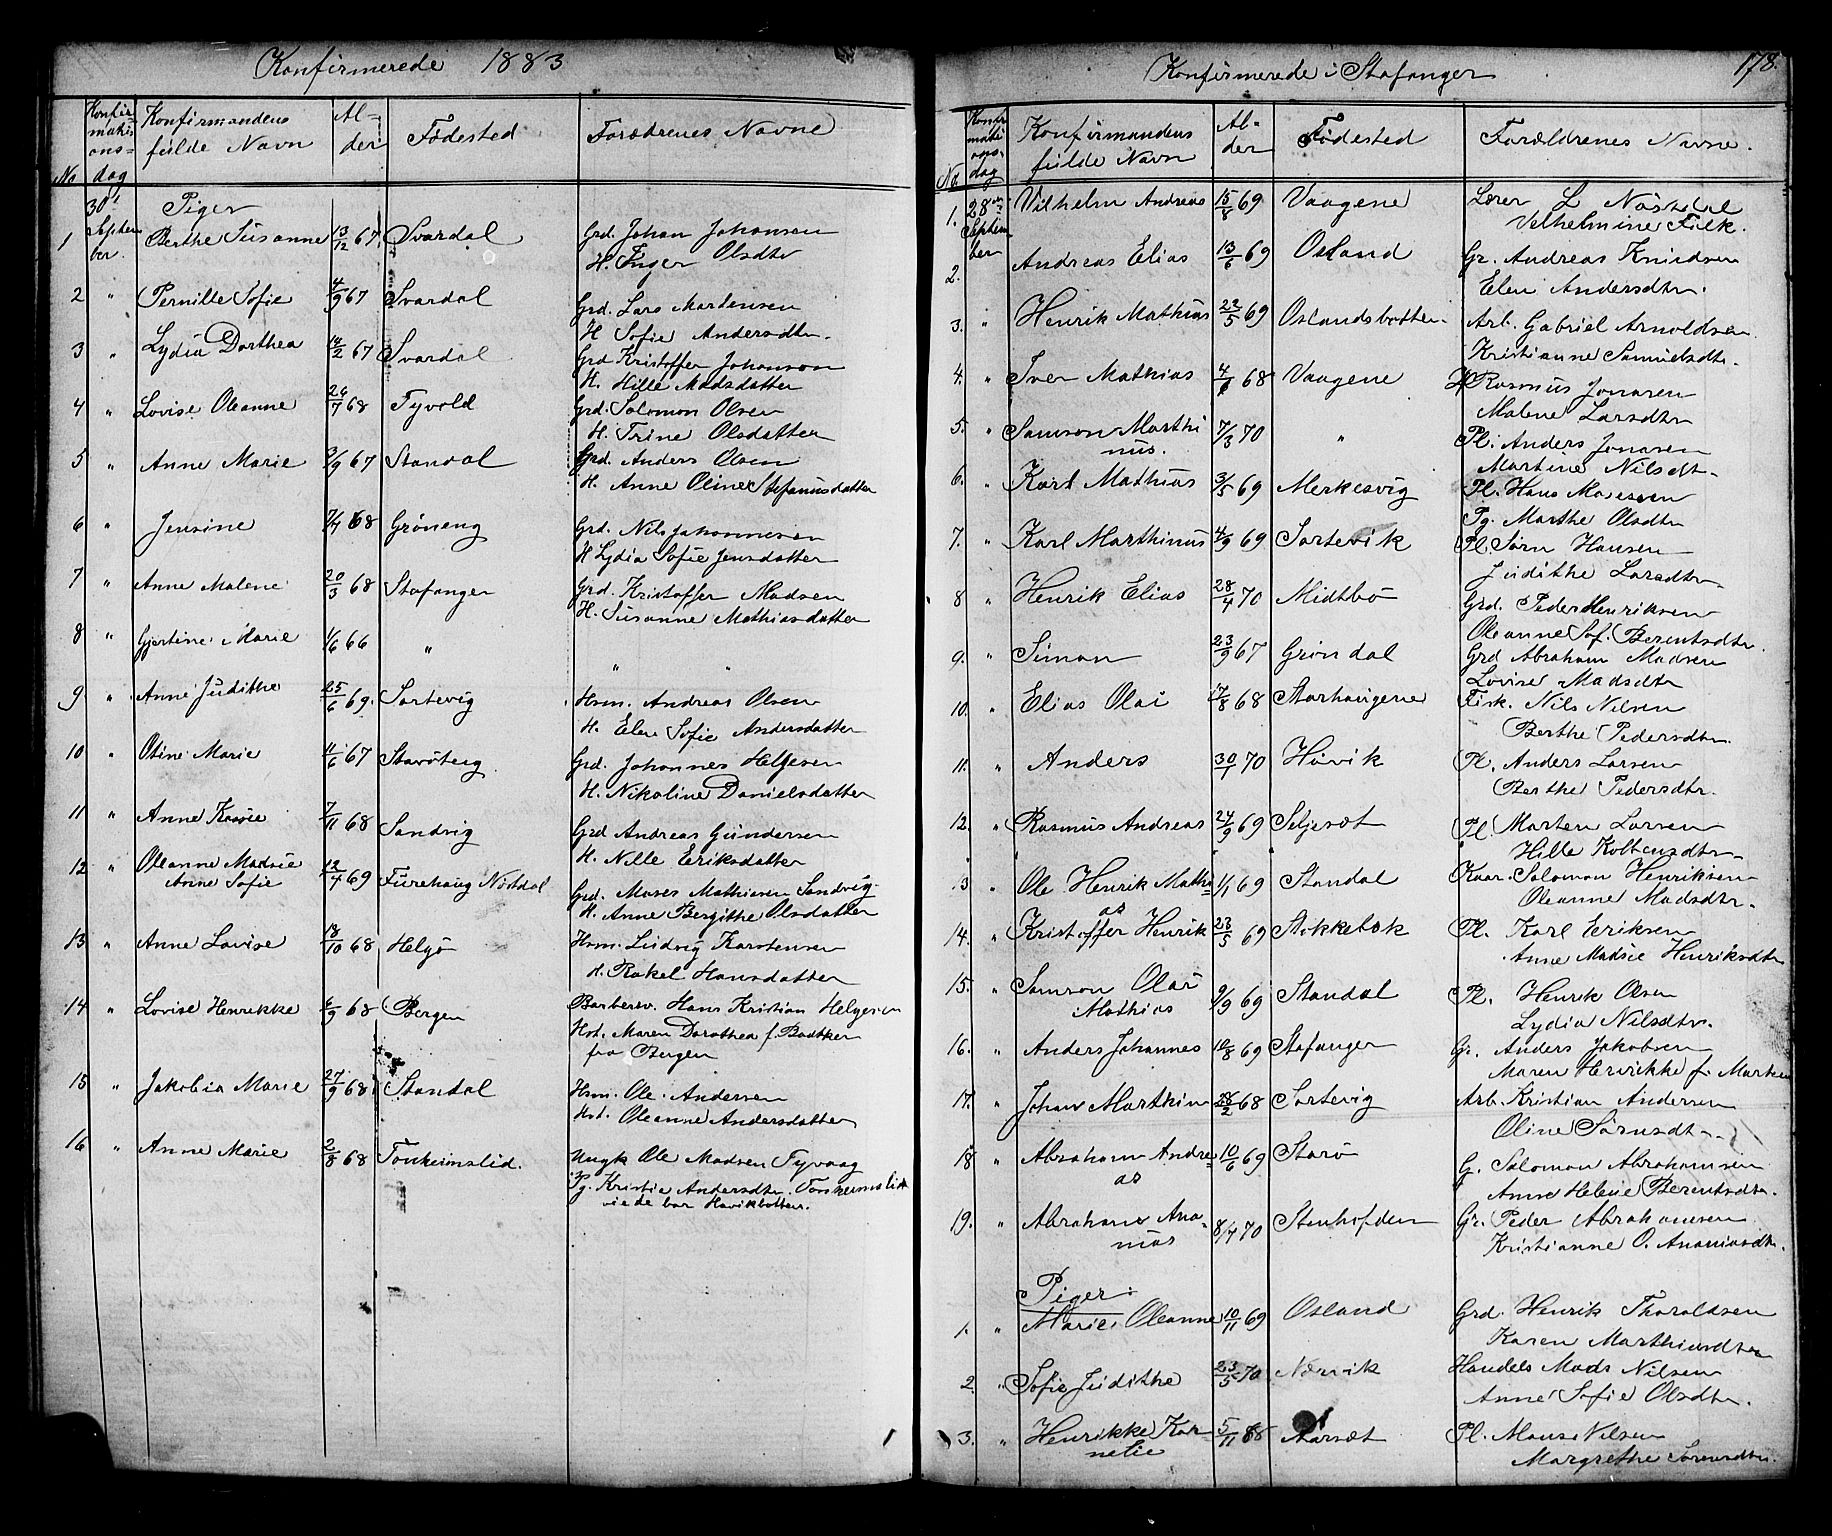 Konfirmerede 1883
No
Konfirmationsdag
Konfirmandens fulde Navn
Alder
Fødested
Forædrenes Navne
30' September
Piger
1 Berthe Susanne 13/12 67 Svardal Grd. Johan Johansen
H. Inger Olsdtr
2 " Pernille Sofie 4/9 67 Svardal Grd. Lars Mortensen
H Sofie Andersdtr.
3 " Lydia Dorthea 14/2 67 Svardal Grd Kristoffer Johanson
H. Hille Madsdatter
4 " Lovise Oleanne 26/7 68 Tyvold Grd. Salomon Olsen
H. Trine Olsdatter
5 " Anne Marie 2/9 67 Standal Grd. Anders Olsen
H. Anne Oline Stefanusdatter
6 " Jensine 7/4 68 Gröneng Grd. Nils Johannesen
H Lydia Sofie Jensdatter
7 " Anne Malene 20/3 68 Stafanger Grd. Kristoffer Madsen
H. Susanne Mathiasdatter
8 " Gjertine Marie 1/6 66 " " "
9 " Anne Judithe 25/6 69. Sortevig Hsm. Andreas Olsen
H. Elen Sofie Andersdatter
10 " Oline Marie 11/6 67 Grd. Johannes Helgesen
H. Nikoline Danielsdatter
11 " Anne 7/11 68 Sandvig Grd Andreas Gundersen
H. Nille Eriksdatter
12 " Oleanne Madsie Anne Sofie 12/4 69 Furehaug Nøstdal Grd. Moses Mathiasen Sandvig.
H. Anne Bergithe Olsdatter
13 " Anne Lovise 18/10 68 Helgö Hsm. Ludvig Karstensen
H. Rakel Hansdatter
14 " Lovise Henrikke 6/9 68 Bergen Barberer. Hans Kristian Helgesen
Hst. Maren Dorothea f. Badtker
fra Bergen
15 " Jakobia Marie 27/9 68 Standal Hsm. Ole Andersen
Hst. Oleanne Andersdatter
16 " Anne Marie 2/8 68 Tonheimslid. Ungk Ole Madsen Tyvaag
Pg. Kristie Andersdtr. Tonheimslid
viede bor Havikbotten.
178.
Konfirmerede i Stafanger
No.
Konfirmationsdag
Konfirmandens fulde Navn
Alder
Fødested
Forældrenes Navne.
1. 28de September Vilhelm Andreas 15/8 69 Vaagene Lærer L Nøstdal
Velhelmine Falk.
2. Andreas Elias 13/6 69 Osland Gr. Andreas Knudsen
Elen Andersdtr.
3. " Henrik Mathias 22/5 69 Oslandsbotten Arb. Gabriel Arnoldsen
Kristianne Samuelsdtr.
4. " Iver Mathias 68 Vaagene Rasmus Jonasen
Malene Larsdtr
5. " Samson Marthinus. 7/3 70 " Pl. Anders Jonasen
Martine Nilsdt.
6. " Karl Mathias 3/5 69 Merkesvig Pl. Hans Monsen
Pg. Marthe Olsdtr
7. " Karl Marthinus 4/9 69 Sortevik Pl Sörn Hansen
Judithe Larsdtr
8 " Henrik Elias 28/4 70 Midtbö Grd. Peder Henriksen
Oleanne Sof. Berentsdtr.
9. " Simon 23/9 67 Gröndal Grd Abraham Madsen
Lovise Madsdtr
10. " Elias Olai 17/8 68 Storhaugene Fisk. Nils Nilsen
Berthe Pedersdtr.
11. " Anders 30/1 70 Hövik Pl. Anders Larsen
Berthe Pedersdtr.
12. " Rasmus Andreas 24/9 69 Seljesæt Pl Morten Larsen
Hille Kolbensdtr
13 " Ole Henrik Mathias 1/1 69 Standal Kaar. Salomon Henriksen
Oleanne Madsdtr.
14. " Kristoffer Henrik 23/5 69 Stokkebæk Pl. Karl Eriksen
Anne Madsie Henriksdtr
15. " Samson Olai Mathias 9/9 69 Standal Pl. Henrik Olsen
Lydia Nilsdtr.
16. " Anders Johannes 10/8 69 Stafanger Gr. Anders Jakobsen
Maren Henrikke f.
17. " Johan Marthin 28/2 68 Sortevig Arb. Kristian Andersen
Oline Sörnsdt.
18 " Abraham Andreas 10/6 69 Starö G. Salomon Abrahamsen
Anne Helene Berentsdtr.
19. " Abraham Ananias 8/4 70 Stenhofden Gr. Peder Abrahamsen
Kristianne O. Ananiasdtr.
Piger.
1. " Marie Oleanne 10/11 69 Osland Grd. Henrik Thoraldsen
Karen Marthinsdtr
2. " Sofie Judithe 23/5 70 Nærvik Handels Mads Nilsen
Anne Sofie Olsdtr.
3. " Henrikke Kornelie 5/11 Aarsæt Pl. Mons Nilsen
Margrethe Sörensdtr.